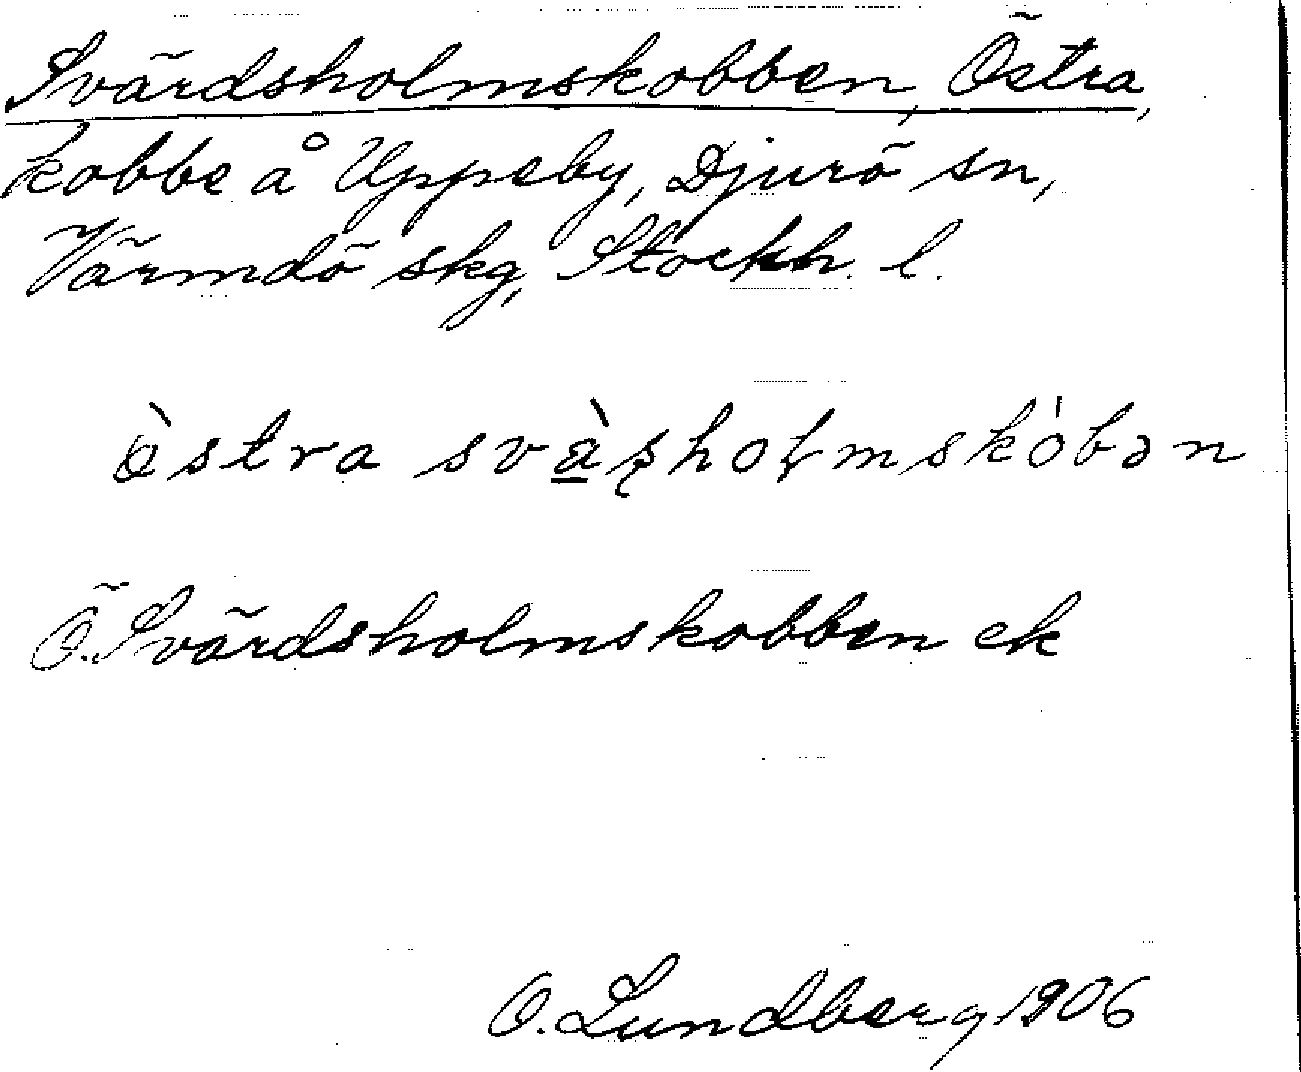 Svärdsholmskobben, Östra,
kobbe å Uppeby, Djurö sn,
Värmdö skg, Stockh. l.
ö̀stra svä̀ṣhoḷmskòbən
Ö. Svärdsholmskobben ek
O. Lundberg 1906